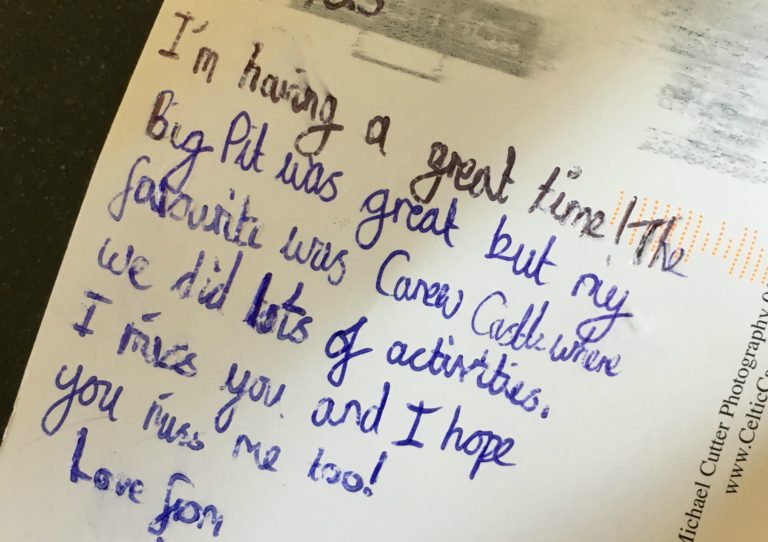 I'm having a great time! The
Big Pit was great but my
favourite was Carew Castle where
we did lots of activities.
I miss you and I hope
you miss me too!
Love from
Michael Cutter Photography
www.CelticCa